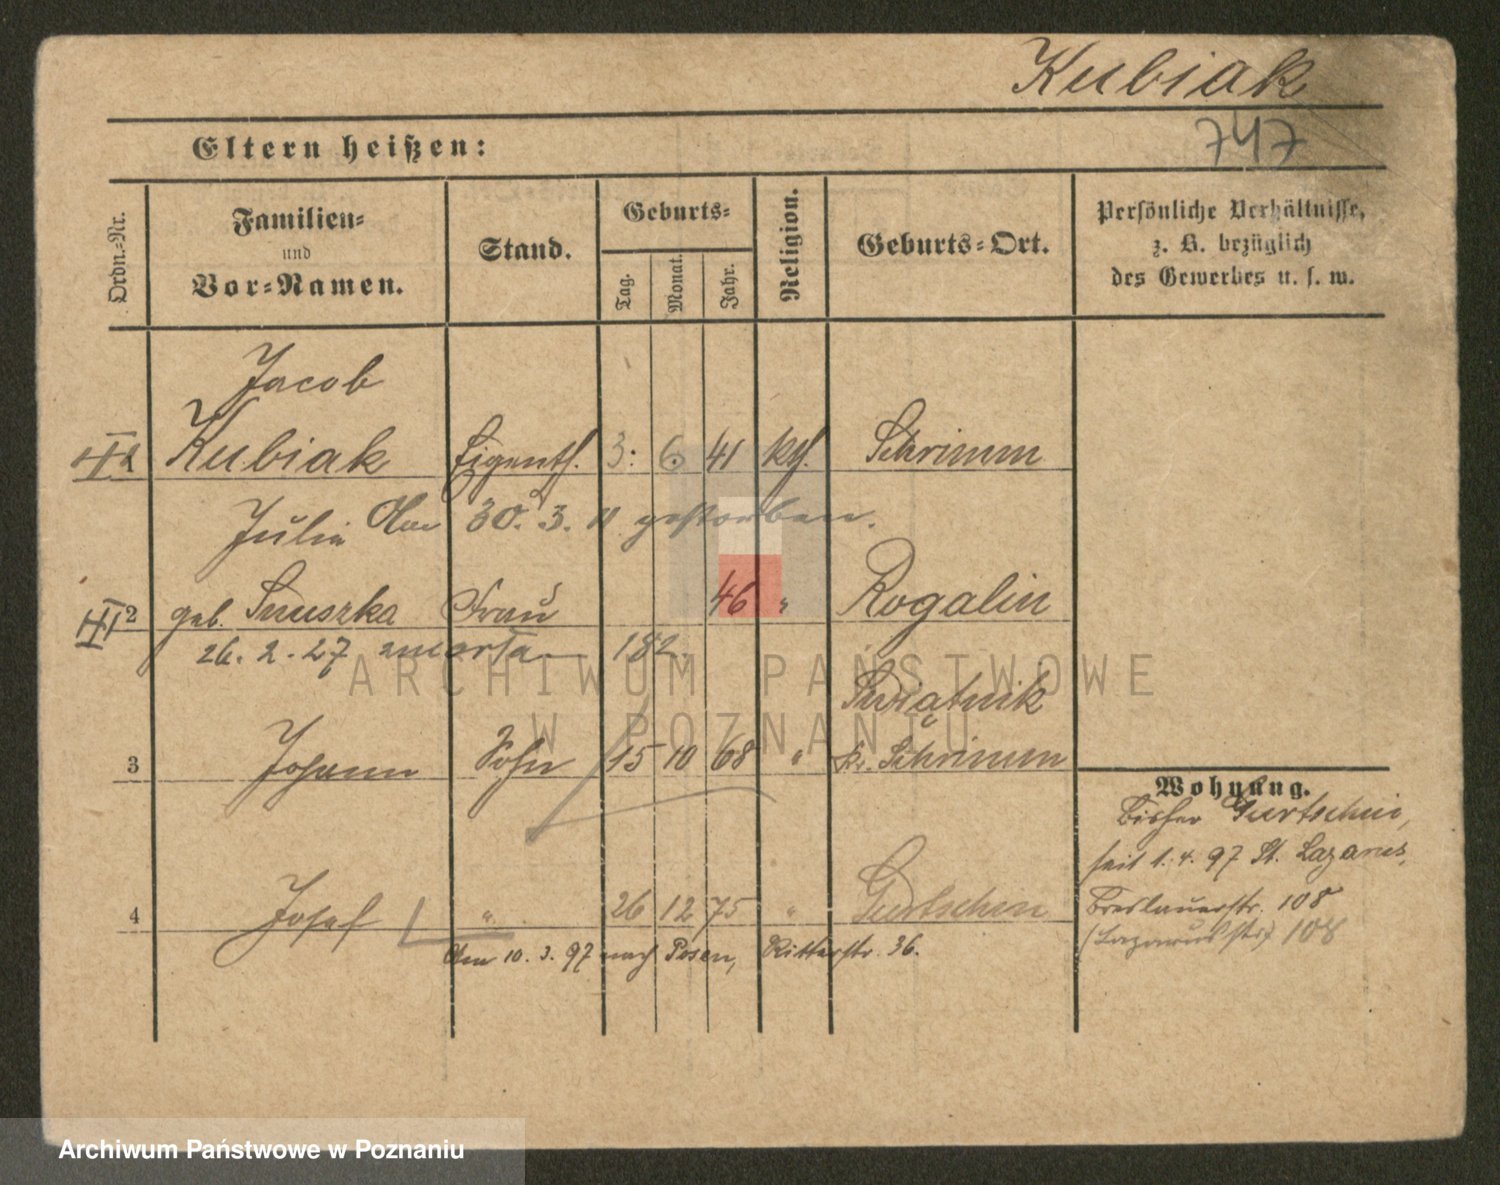 Kubiak
747
Eltern heißen:
Ordn.-Nr.
Familien-
und
Vor-Namen.
Stand.
Geburts-
Tag.
Monat.
Jahr.
Religion.
Geburts-Ort.
Persönliche Verhältnisse,
z. B. bezüglich
des Gewerbes u. s. w.
Jacob
Kubiak Eigenth. 3. 6. 41 kth. Schrimm
Julia Am 30. 3. 11 gestorben.
2 geb. Smuszka Frau 46 " Rogalin
26. 2. 27 182.
ARCHIWUM PAŃSTWOWE
W POZNANIU
Swiątnik
3 Johann Sohn 15 10 68 " Kr. Schrimm
Wohnung.
Bisher Gurtschin,
seit 1. 4. 97 St. Lazarus,
Breslauerstr. 108
(Lazarusstr.) 108
4 Josef " 26 12 75 " Gurtschin
Am 10. 3. 97 nach Posen, Ritterstr. 36.
Archiwum Państwowe w Poznaniu